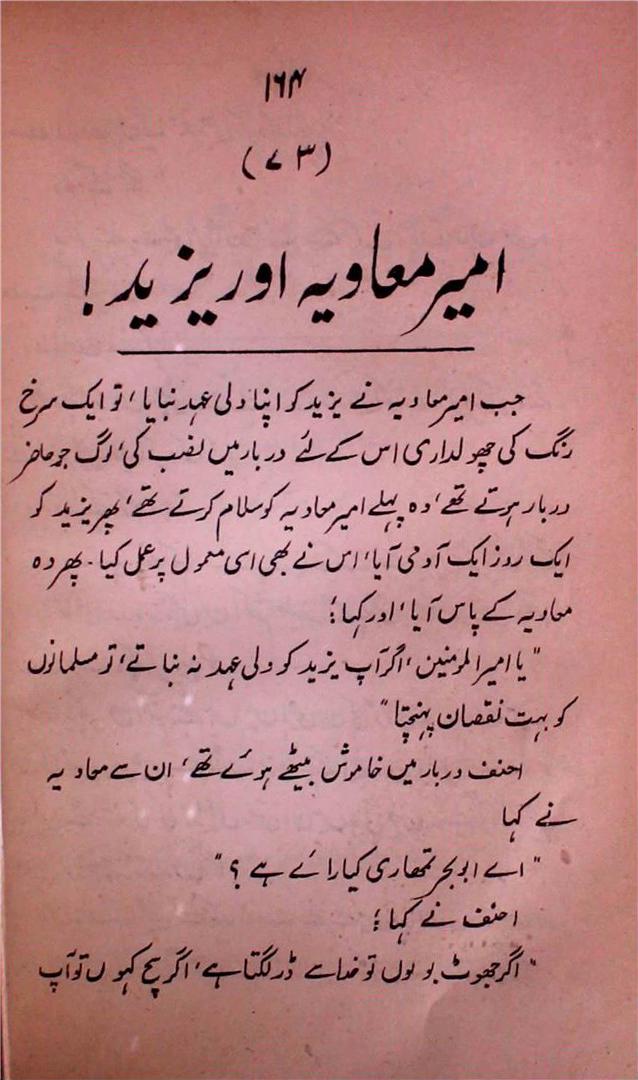 ۱۶۴
(۷۳)
امیر معاویہ اور یزید!
جب امیر معاویہ نے یزید کو اپنا ولی عہد بنایا، تو ایک سرخ
رنگ کی چھولداری اس کے لئے دربار میں نصب کی، لوگ جو حاضر
دربار ہوتے تھے، وہ پہلے امیر معاویہ کو سلام کرتے تھے، پھر یزید کو
ایک روز ایک آدمی آیا، اس نے بھی اسی معمول پر عمل کیا۔ پھر وہ
معاویہ کے پاس آیا، اور کہا؛
"یا امیر المومنین، اگر آپ یزید کو ولی عہد نہ بناتے، تو مسلمانوں
کو بہت نقصان پہنچتا"
احنف دربار میں خاموش بیٹھے ہوئے تھے، ان سے معاویہ
نے کہا
"اے ابو بحر تمھاری کیا رائے ہے؟"
احنف نے کہا؛
"اگر جھوٹ بولوں تو خدا سے ڈر لگتا ہے، اگر سچ کہوں تو آپ